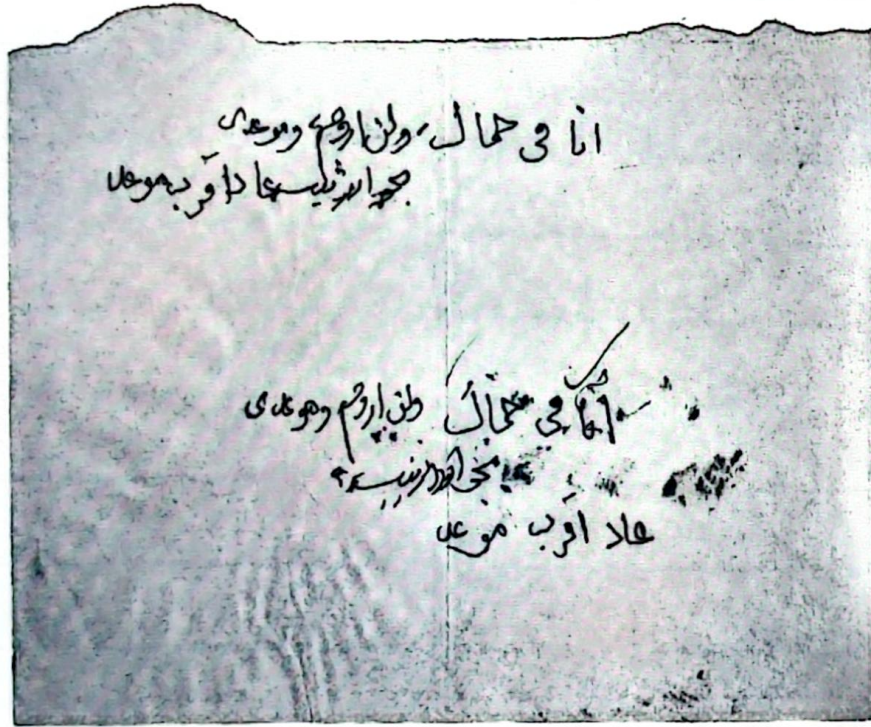 انا في حماك ولن اروح وموعدى
عاد اقرب موعد
انا في حماك ولن اروح وموعدى
عاد اقرب موعد